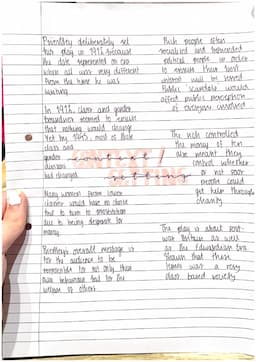 Priestley deliberately set
this play in 1912 because
the date represented an era
when all was very different
from the time he was
writing
In 1912, class and gender
boundaries seemed to ensure
that nothing would change
Yet by 1945, most of those
class and
gender
divisions
had changed
Many women from lower
classes would have no choice
but to turn to prostitution
due to being desperate for
money
Priestley's overall message is
for the audience to be
responsible for not only their
own behaviour but for the
welfare of others
context /
setting
Rich people often
socialised and befriended
political people in order
to ensure their best
interest will be served
Public scandals would
affect public perception
of everyone involved
The rich controlled
the money of ten
also meant they
control whether
or not poor
people could
get help through
charity
The play is about post-
war Britain as well
as the Edwardian era
shown that these
times was a very
class based society